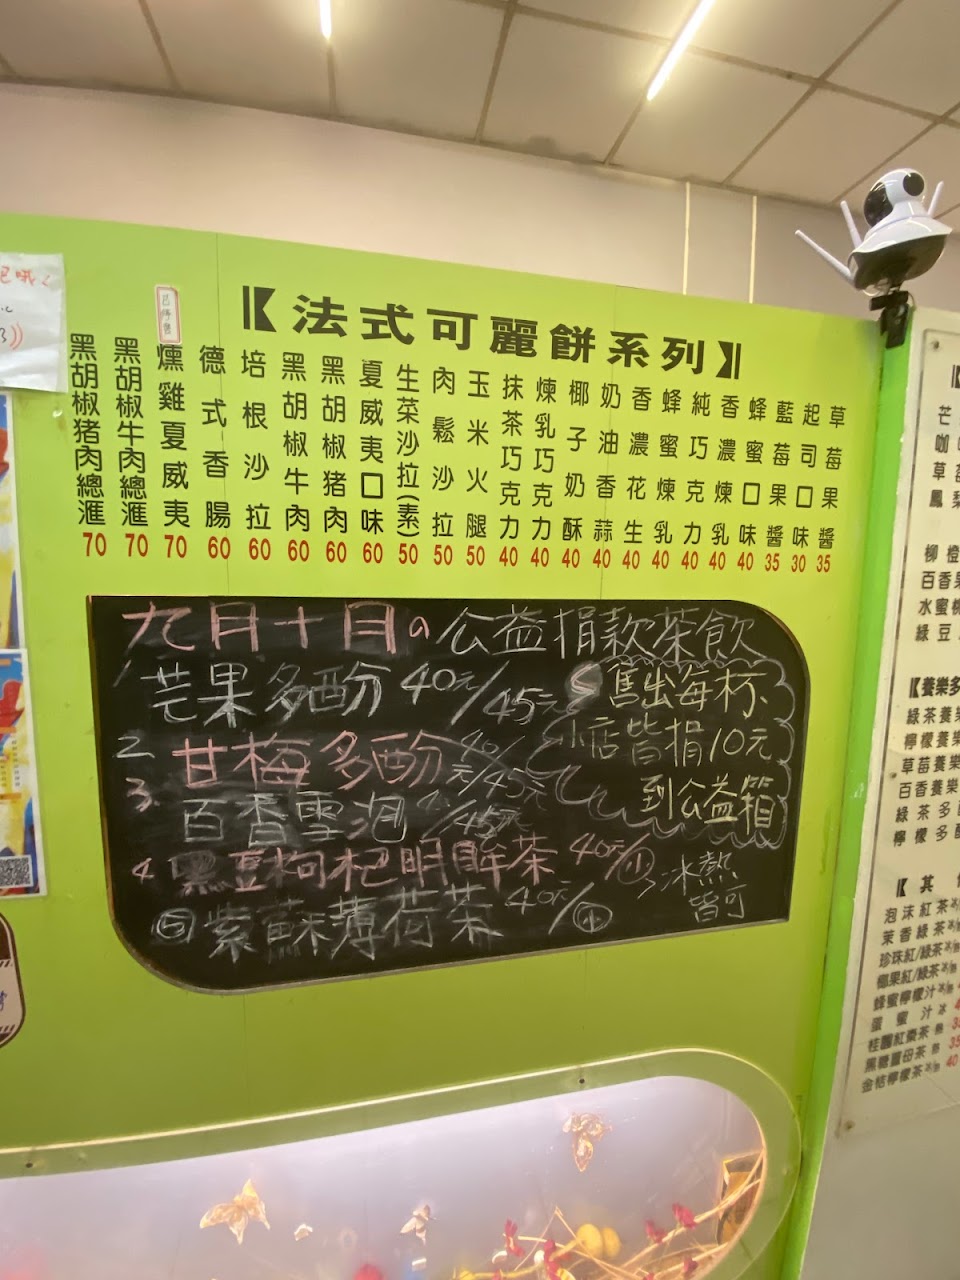 【法式可麗餅系列】
已停售
黑胡椒豬肉總滙 70
黑胡椒牛肉總滙 70
燻雞夏威夷 70
德式香腸 60
培根沙拉 60
黑胡椒牛肉 60
黑胡椒豬肉 60
夏威夷口味 60
生菜沙拉(素) 50
肉鬆沙拉 50
玉米火腿 50
抹茶巧克力 40
煉乳巧克力 40
椰子奶酥 40
奶油香蒜 40
香濃花生 40
蜂蜜煉乳 40
純巧克力 40
香濃煉乳 40
蜂蜜口味 40
藍莓果醬 35
起司口味 30
草莓果醬 35
九月十日の公益捐款茶飲
1 芒果多酚 40元/45元
2. 甘梅多酚 40元/45元
3. 百香雪泡 /45元
4. 黑豆枸杞明眸茶 40元/小
⑤ 紫蘇薄荷茶 40元/小
冰熱
皆可
售出每杯
小店皆捐10元
到公益箱
柳橙
百香果
水蜜桃
綠豆
【養樂多
綠茶養樂
檸檬養樂
草莓養樂
百香養樂
綠茶多
檸檬多
【其
泡沫紅茶
茉香綠茶
珍珠紅/綠茶
椰果紅/綠茶
蜂蜜檸檬汁
蛋蜜汁 冰
桂圓紅棗茶 熱
黑糖薑母茶 熱 35
金桔檸檬茶 40